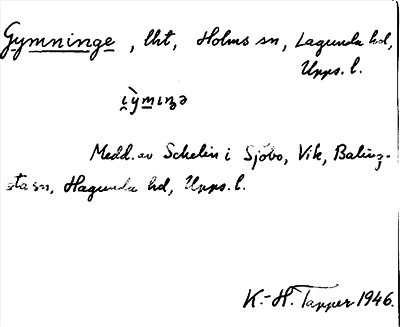 Gymninge, lht, Holms sn, Lagunda hd,
Upps. l.
Medd. av Schelin i Sjöbo, Vik, Balingsta sn, Hagunda hd, Upps. l.
K.-H. Tapper 1946.